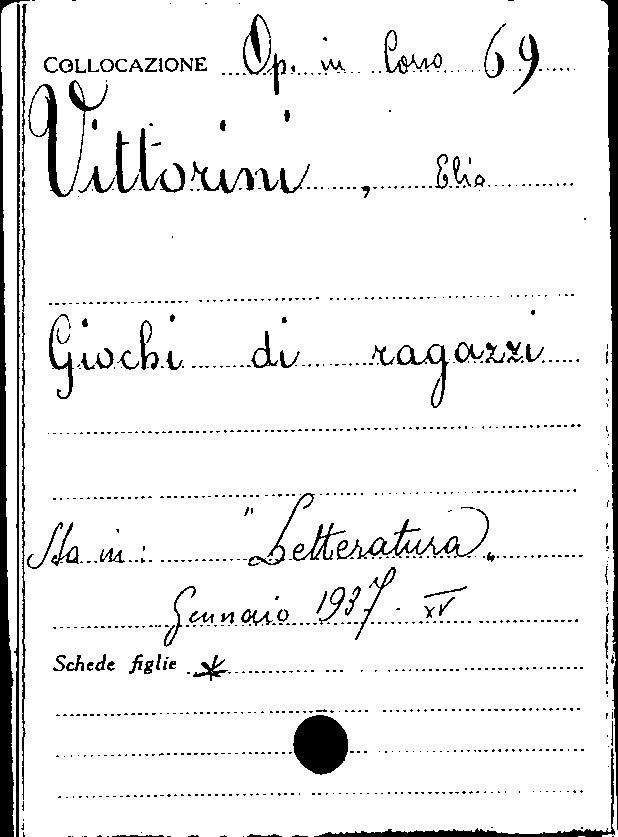 COLLOCAZIONE Op. in Corso 69
Vittorini, Elio
Giochi di ragazzi
Sta in: "Letteratura"
Gennaio 1937 - XV
Schede figlie *